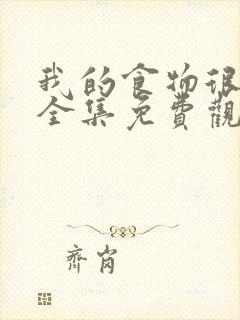 我的食物很
全集免費觀
齊崗